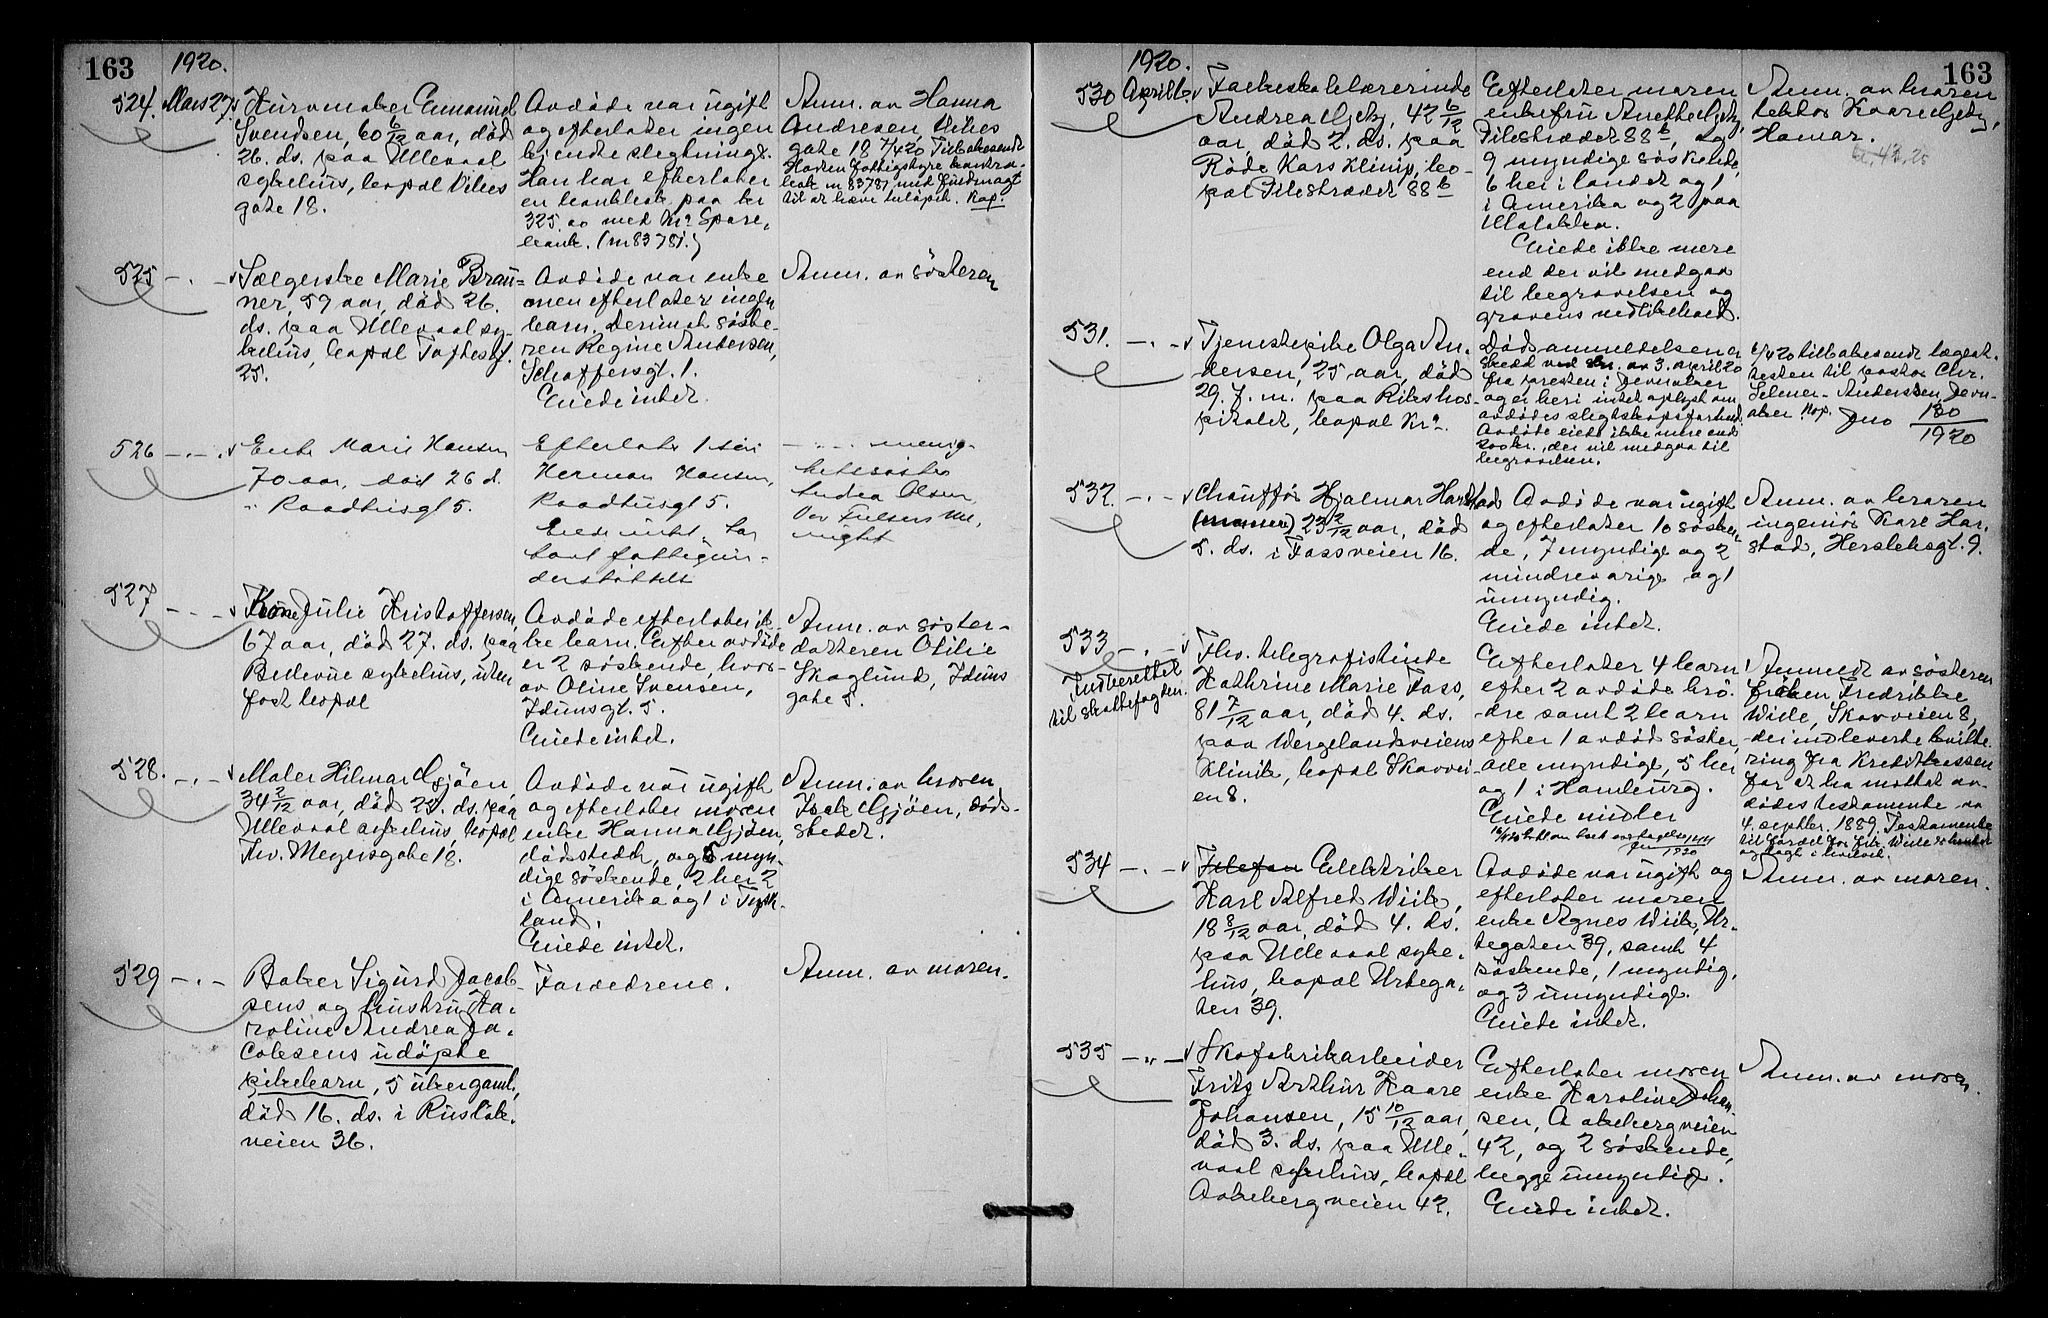 163
1920.
524. Mars 27.
Kurvmaker Emanuel
Svendsen, 60 6/12 aar, död
26. ds. paa Ullevaal
sykehus, bopæl Vibes
gate 18.
Avdöde var ugift
og efterlater ingen
kjendte slegtninge.
Han har efterlater
en bankbok paa kr
325.00 med Kr.a Spare,
bank. (nr 83781.)
Anm. av Hanna
Andresen, Vibes
gate 18 7/4 20 Tilbakesendt
fattigstyre
nr 83781 med fuldmagt
til at hæve
525 - . -
Sælgerske Marie Brau=
ner, 59 aar, död 26.
ds. paa Ullevaal sy-
kehus, bopæl Toftesgt.
25.
Avdöde var enke
men efterlater ingen
barn. Derimot söste-
ren Regine Andersen,
Schoffersgt. 1.
Eiede intet.
Anm. av sösteren
526 - . -
Enke Marie Hansen
70 aar, död 26 d.
i Raadhusgt 5.
Efterlater 1 sön
Herman Hansen,
Raadhusgt 5.
Eiede intet, har
havt fattigun-
derstöttelse
menig-
hetssöster
Andrea Olsen
527 - . -
Kone Julie Kristoffersen,
67 aar, död 27. ds. paa
Bellevue sykehus, uten
fast bopæl
Avdöde efterlater ik-
ke barn. Efter avdöde
er 2 söskende, hvor-
av Oline Svensen,
Idunsgt. 5.
Eiede intet.
Anm. av söster-
datteren Otilie
Skoglund, Iduns
gate 5.
528. - . -
Maler Hilmar Gjöen,
34 2/12 aar, död 23. ds. paa
Ullevaal sykehus, bopæl
Thv. Meyersgate 18.
Avdöde var ugift
og efterlater moren
enke Hanna Gjöen,
dödsstedet, og 5 myn-
dige söskende, 2 her 2
i Amerika og 1 i Tysk-
land.
Eiede intet.
Anm. av broren
Isak Gjöen, död-
stedet.
529 - . -
Baker Sigurd Jacob-
sens og hustru Ka-
roline Andrea Ja-
cobsens udöpte
pikebarn, 5 uker gaml.,
död 16. ds. i Ruselök-
veien 36.
Forældrene.
Anm. av moren.
163
1920.
530 April 6.
Andrea Gjeby, 42 6/12
aar, död 2. ds. paa
Röde Kors Klinik, bo-
pæl Pilestrædet 88 b
Efterlater moren
enkefru Anethe Gjeby,
Pilestrædet 88 b, og
9 myndige söskende,
6 her i landet og 1
i Amerika og 2 paa
Malakka.
Eiede ikke mere
end der vil medgaa
til begravelsen og
gravens vedlikehold.
Anm. av broren
lektor Kaare Gjeby,
Hamar.
531. - . -
Tjenestepike Olga An-
dersen, 25 aar, död
29. f. m. paa Rikshos-
pitalet, bopæl Kr.a
Dödsanmeldelsen er
skedd ved skr. av 3. april 20
fra presten i Jevnaker
og er heri intet oplyst om
avdödes slegtskapsforhold.
Avdöde eiede ikke mere end
300 kr., der vil medgaa til
begravelsen.
6/4 20 tilbakesendt lægeat-
testen til pastor Chr.
Selmer-Anderssen, Jevn-
aker. Kop. Jno 130/1920
532. - . -
Chaufför Hjalmar Harstad
23 2/12 aar, död
5. ds. i Fossveien 16.
Avdöde var ugift
og efterlater 10 sösken-
de, 7 myndige og 2
mindreaarige og 1
umyndig.
Eiede intet.
Anm. av broren
ingeniör Kare Har-
stad, Herslebsgt. 9.
533 - . -
Indberettet
til skattefogden.
Fhv. telegrafistinde
Kathrine Marie Foss,
81 7/12 aar, död 4. ds.
paa Wergelandsveiens
Klinik, bopæl Skovvei-
en 8.
Efterlater 4 barn
efter 2 avdöde brö-
dre samt 2 barn
efter 1 avdöd söster,
alle myndige, 5 her
og 1 i Hamburg.
Eiede midler
Anmeldt av sösteren
fröken Fredrikke
Wiele, Skovveien 8,
der indleverte kvitte-
ring fra Kreditkassen
for at ha mottat av-
dödes testamente av
4. septbr. 1889. Testamente
534 - . -
Elektriker
Karl Alfred Wiik,
18 8/12 aar, död 4. ds.
paa Ullevaal syke-
hus, bopæl Urtega-
ten 39.
Avdöde var ugift og
efterlater moren
enke Agnes Wiik, Ur-
tegaten 39, samt 4
söskende, 1 myndig,
og 3 umyndige.
Eiede intet.
Anm. av moren.
535 - " -
Skofabrikarbeider
Fritz Arthur Kaare
Johansen, 15 10/12 aar,
död 3. ds. paa Ulle-
vaal sykehus, bopæl
Aakebergveien 42.
Efterlater moren
enke Karoline Johan-
sen, Aakebergveien
42, og 2 söskende,
begge umyndig.
Eiede intet.
Anm. av moren.